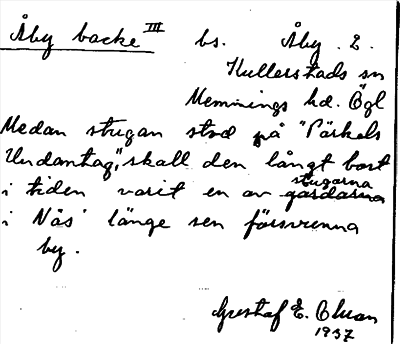 Åby backe III bs. Åby. 2.
Kullerstads sn
Memmings hd. Ögl
Medan stugan stod på "Pärkels
Undantag", skall den långt bort
i tiden varit en av stugorna gårdarna
i Nås länge sen försvunna
by.
Gustaf E. Ohman
1937